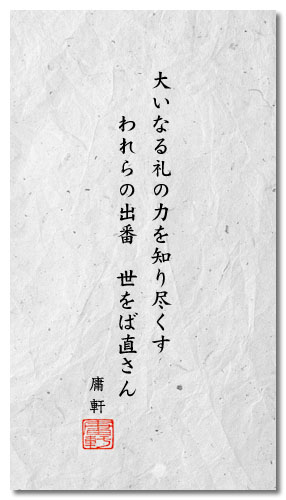 大いなる礼の力を知り尽くす
われらの出番　世をば直さん
庸軒
庸軒